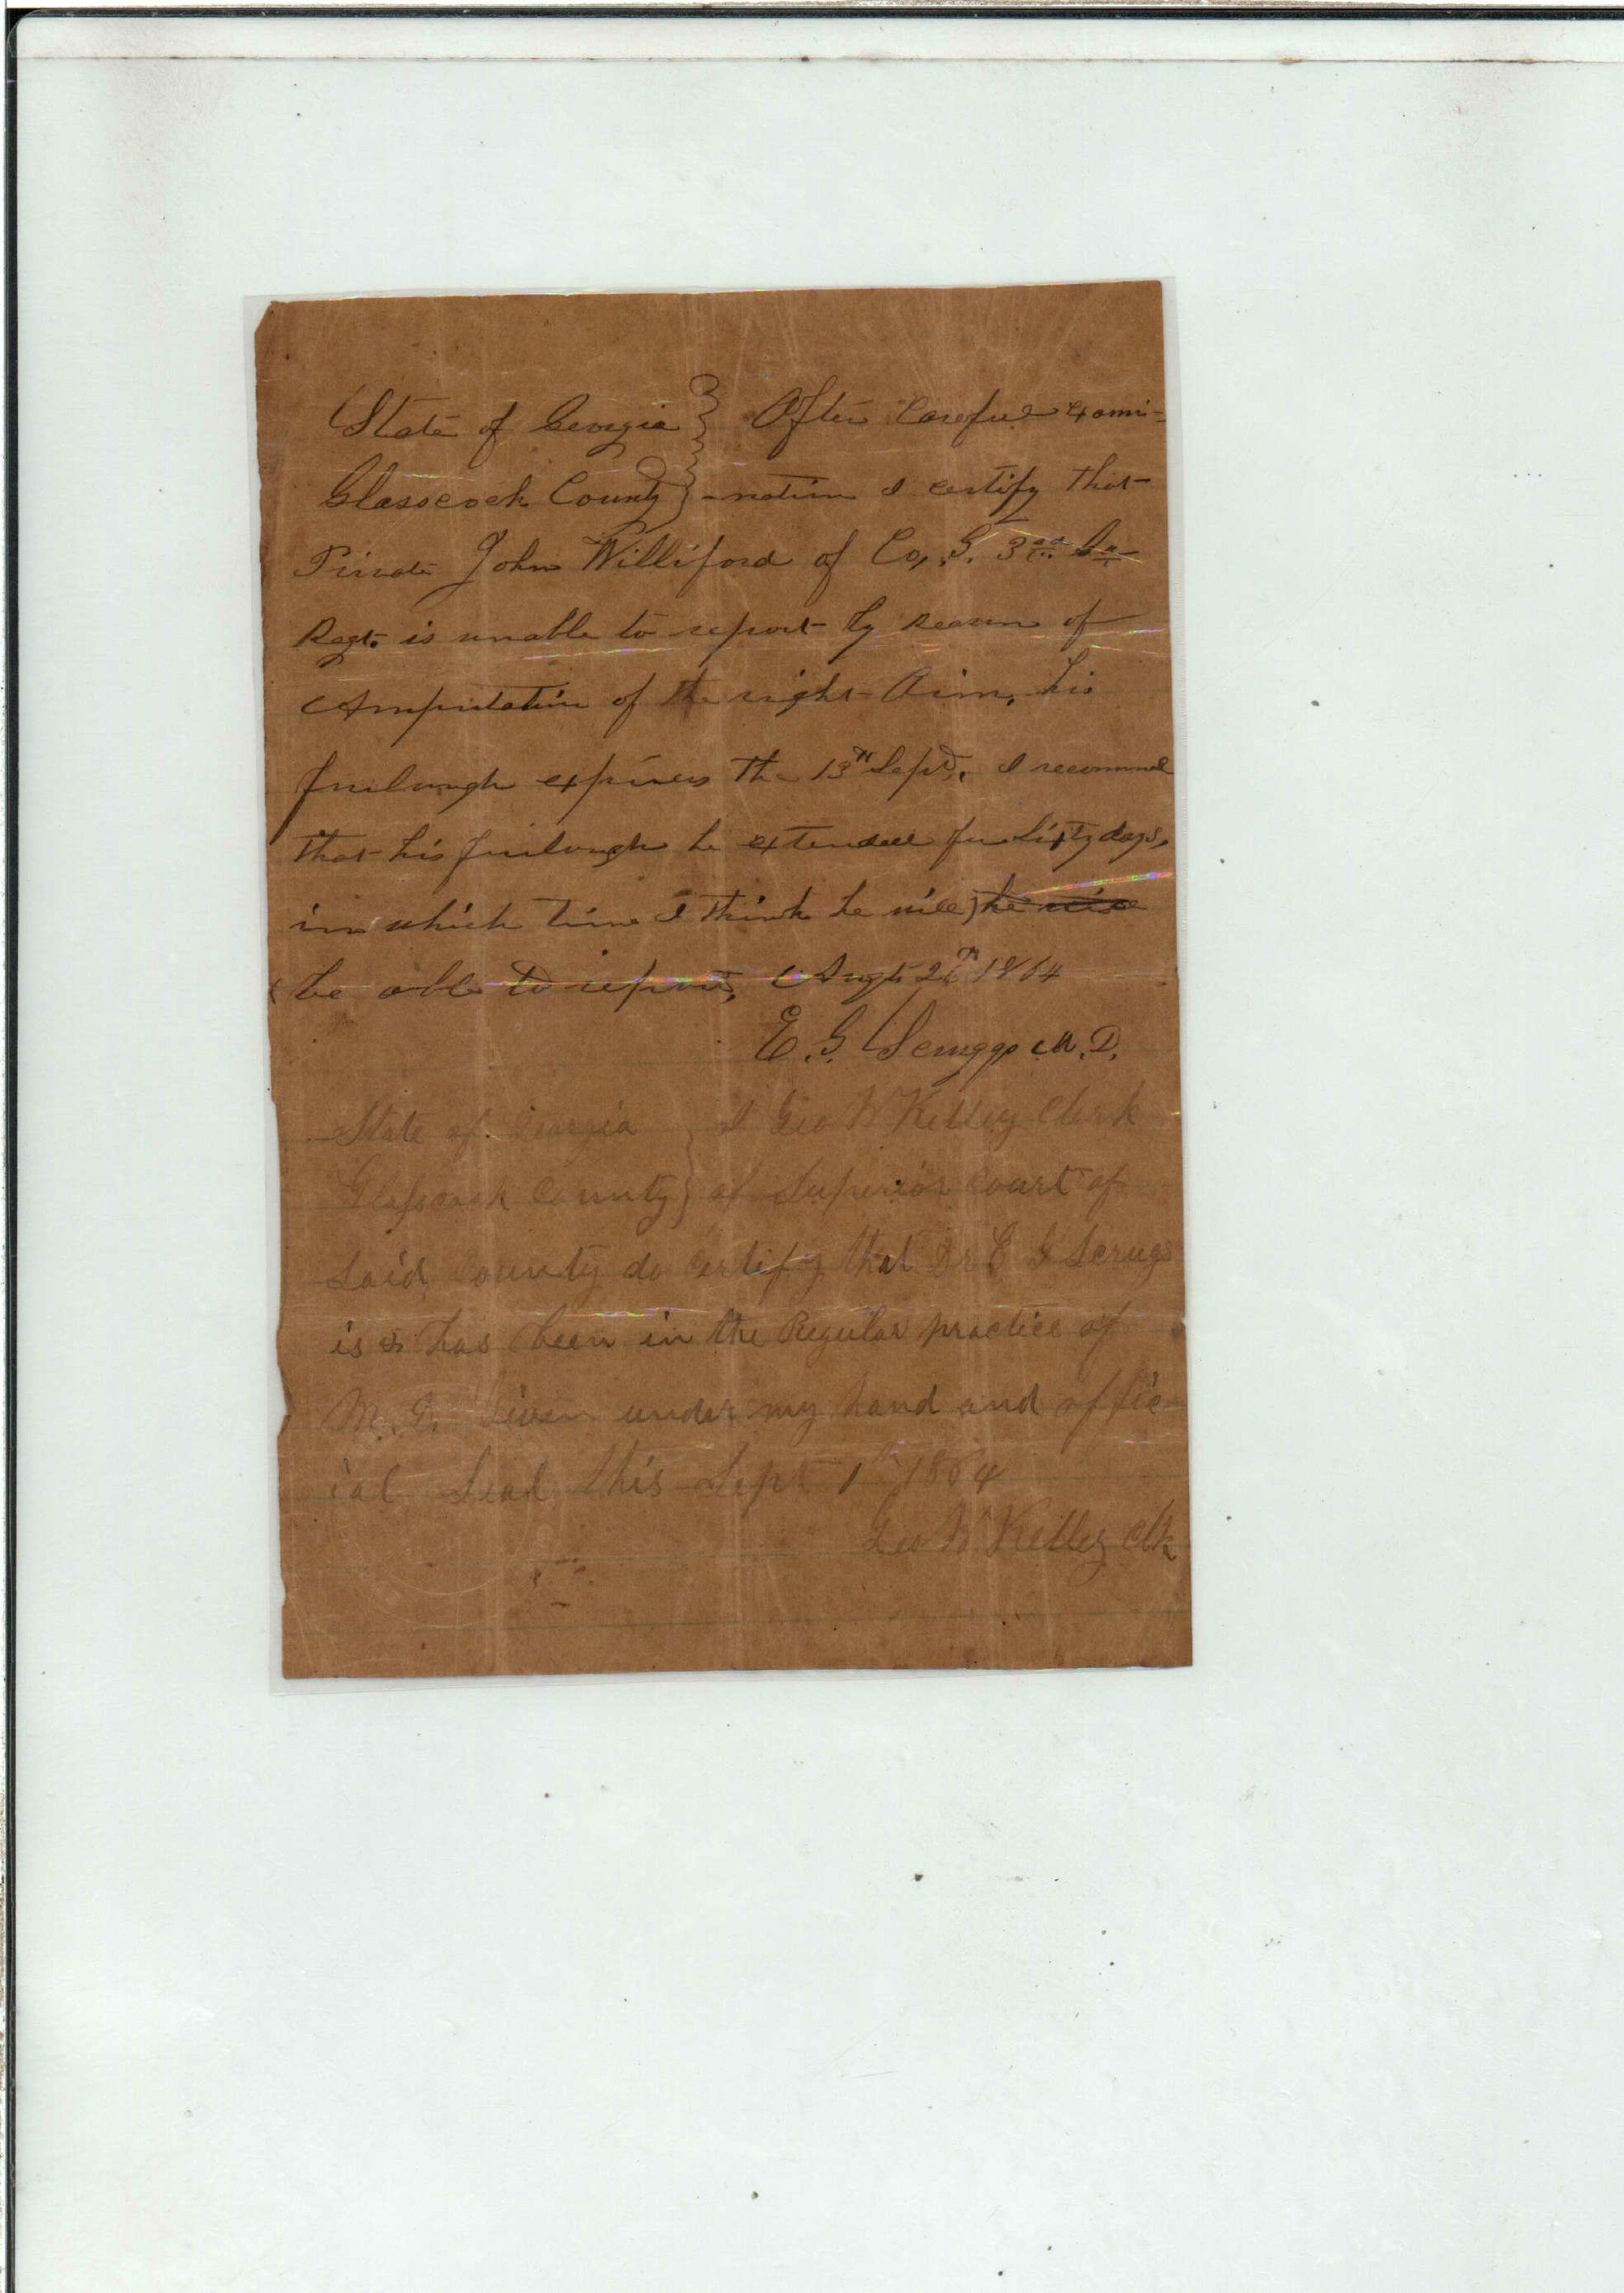 State of Georgia } After Careful exami-
Glasscock County } -nation I certify that
Private John Williford of Co, G. 3rd Ga
Regt. is unable to report by reason of
Amputation of the right Arm, his
furlough expires the 13th Sept, I recommend
that his furlough be extended for sixty days,
in which time I think he will he will
be able to report, Augt 1864
E. G. Scruggs M. D.
State of Georgia } I Geo W Kelley Clerk
Glasscock County } of Superior Court of
Said County do certify that Dr E G Scrugs
is & has been in the Regular practice of
M. D. Given under my hand and offic-
ial Seal this Sept 1th 1864
Geo W Kelley Clk